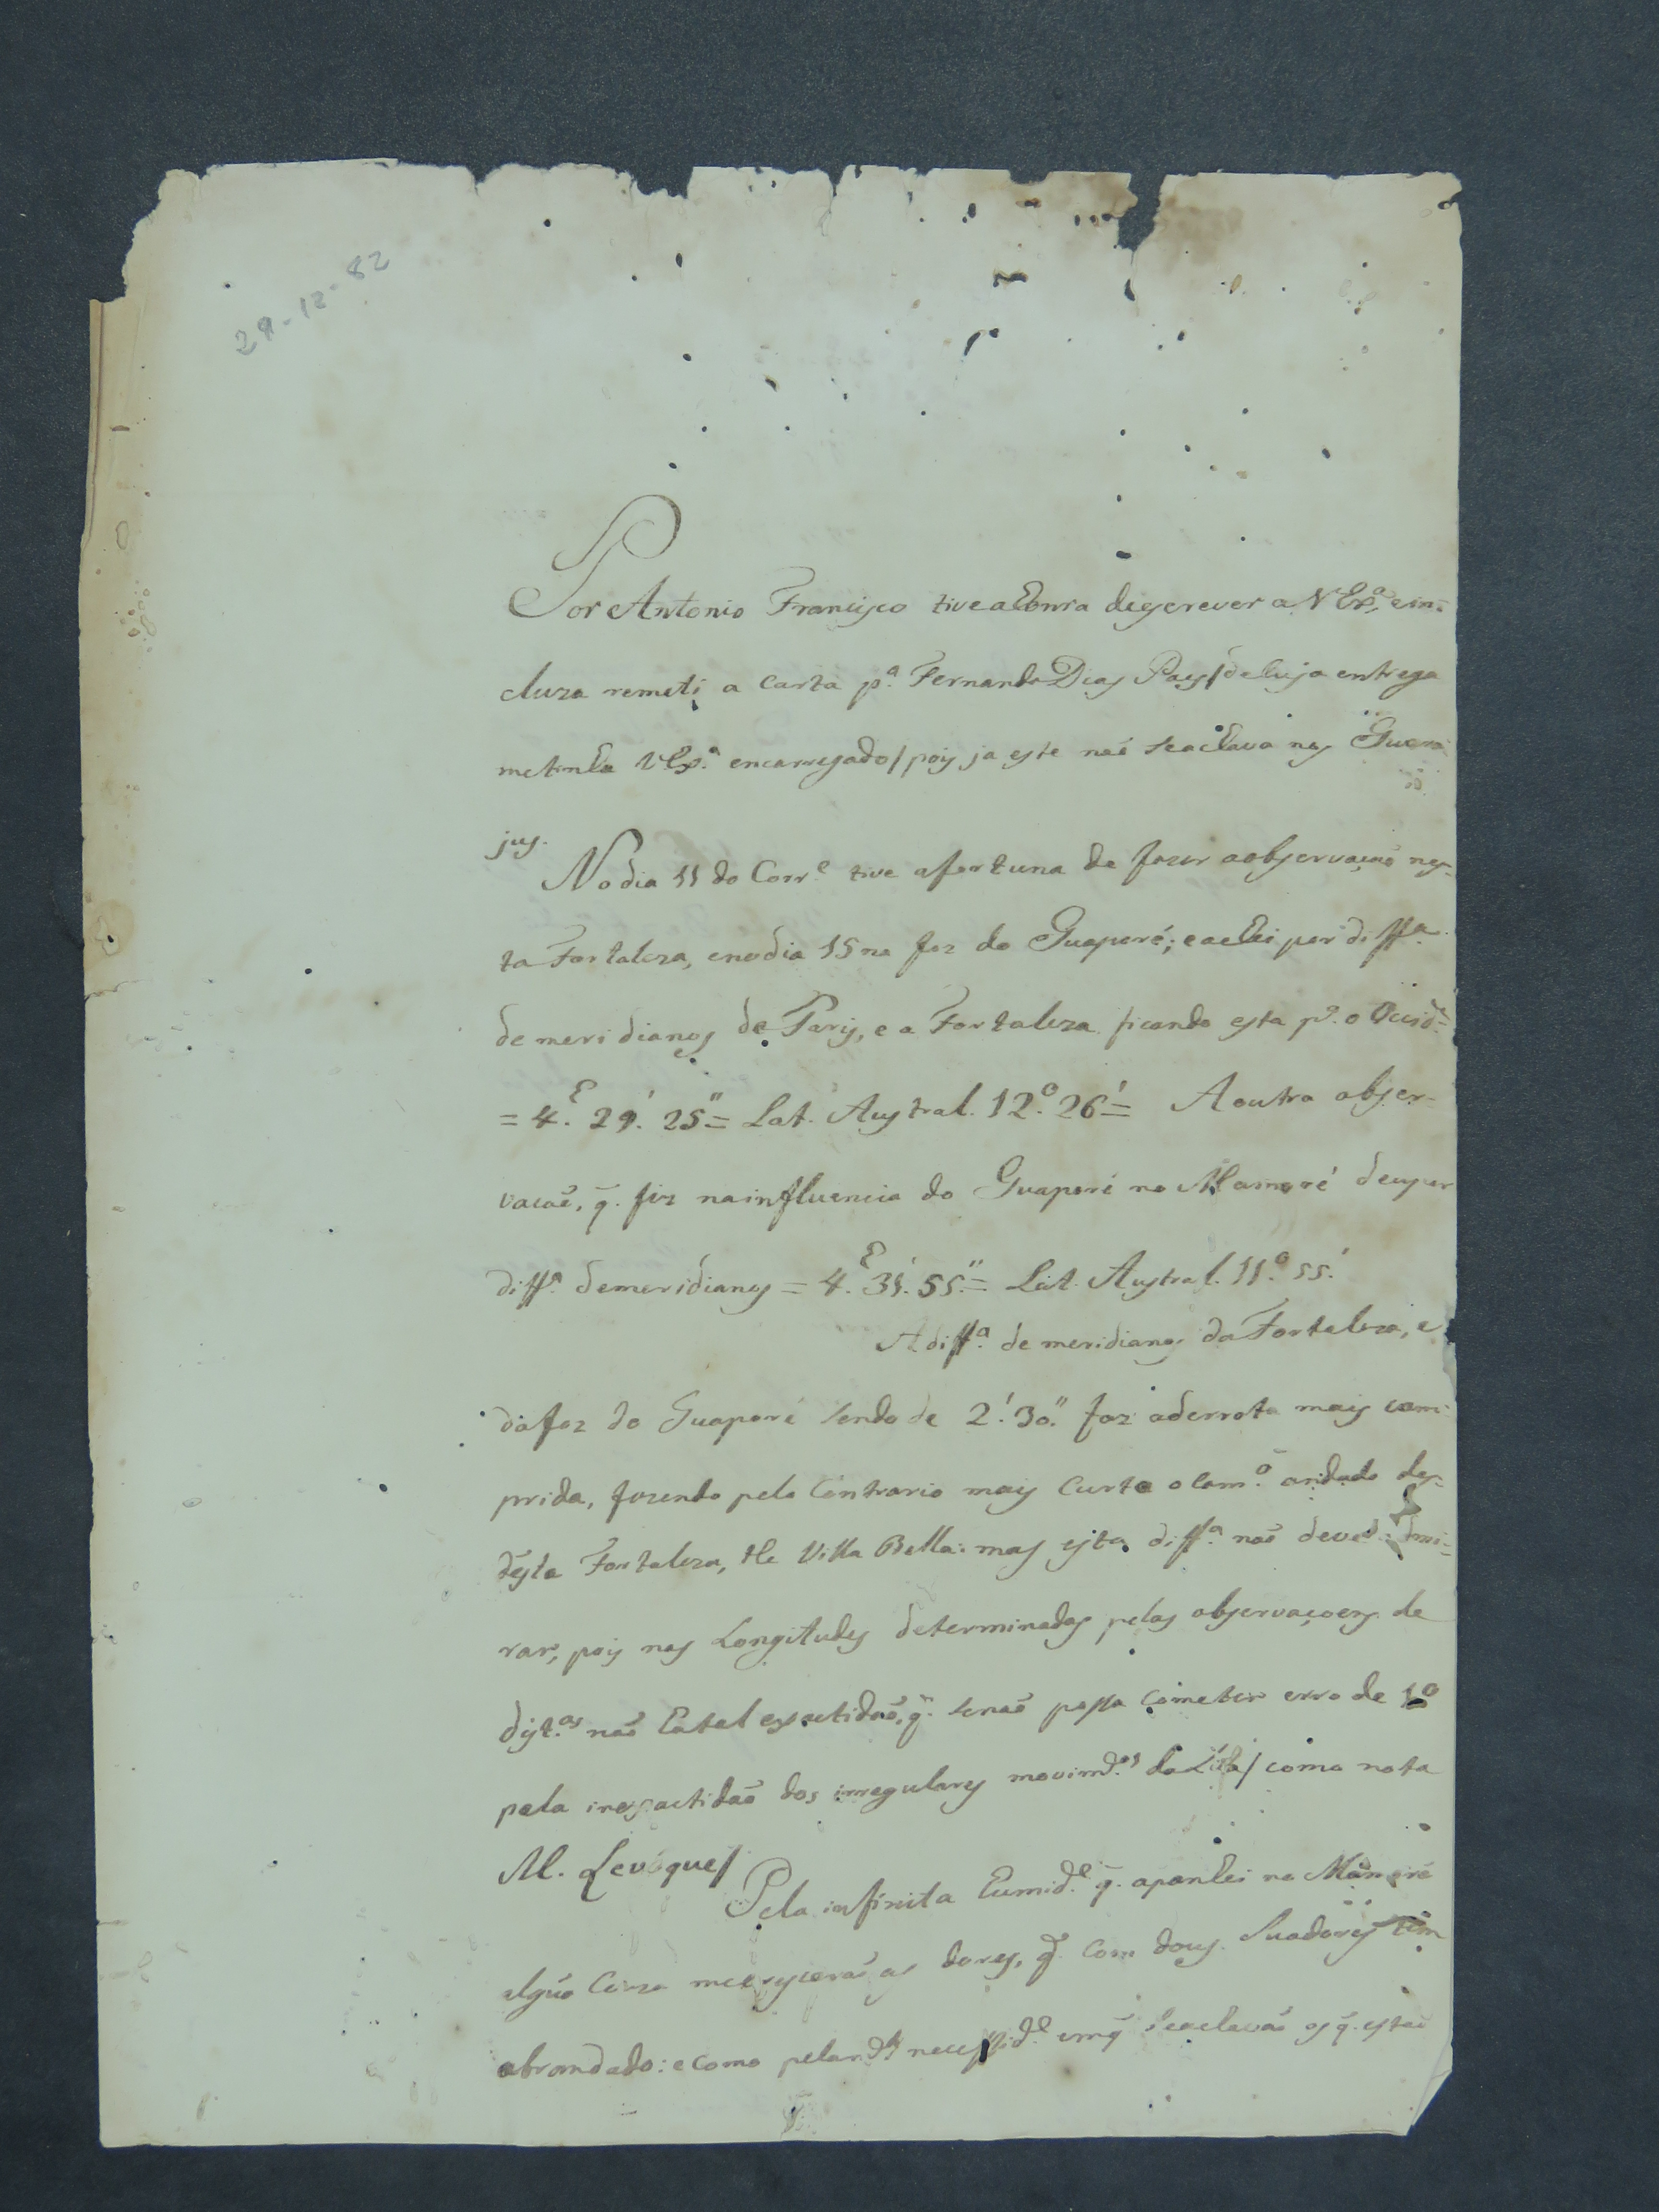 29-12-82
Por Antonio Francisco tive a honra de escrever a V Exª, e in-
cluza remeti a carta pª. Fernando Dias Paes / de cuja entrega
me tinha V Exª. encarregado / pois ja este naõ se achava nos Guara-
jus.
No dia 11 do Corr.e tive a fortuna de fazer a observaçaõ nes-
ta Fortaleza, e no dia 15 na foz do Guaporé; e achei por diffª.
de meridianos de Paris, e a Fortaleza ficando esta pª. o Occid.e
= 4.h 29.' 25." = Lat. Austral. 12.º 26' = A outra obser-
vacaõ, q̃. fiz na influencia do Guaporé no Mamoré deu por
diffª. de meridianos = 4.h 31.' 55." = Lat. Austral. 11.º 55.'
A diffª. de meridianos da Fortaleza, e
da foz do Guaporé sendo de 2.' 30." faz a derrota mais com-
prida, fazendo pelo contrario mais curto o Camº. andado des-
desta Fortaleza, the Villa Bella: mas esta diffª. naõ deve admi-
rar, pois nas Longitudes determinadas pelas observaçoens de
dist.as naõ ha tal exactidaõ, q̃. se naõ possa cometer erro de 1º
pela inexactidaõ dos irregulares movim.tos da Lũa / como nota
M. Levêque /
Pela infinita humid.e q̃. apanhei no Mamoré
algũa Couza me cresceraõ as dores, q̃. com dous Suadores tem
abrandado: e como pela necessid.e em q̃ se achavaõ os q̃. estaõ